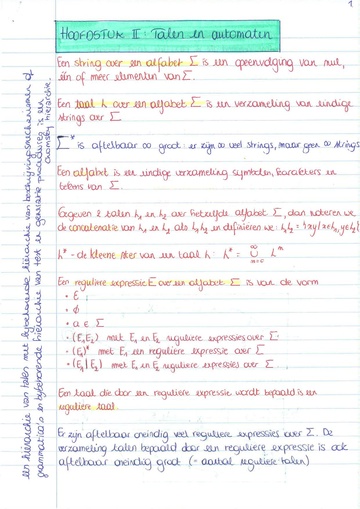 1
HOOFDSTUK II : Talen en automaten
Een string over een alfabet Σ is een opeenvolging van nul,
één of meer elementen van Σ.
Een taal L over een alfabet Σ is een verzameling van eindige
strings over Σ.
Σ* is aftelbaar ∞ groot: er zijn ∞ veel strings, maar geen ∞ strings
Een alfabet is een eindige verzameling symbolen, karakters en
tekens van Σ.
Gegeven 2 talen L₁ en L₂ over hetzelfde alfabet Σ, dan noteren we
de concatenatie van L₁ en L₂ als L₁L₂ en definiëren we: L₁L₂ = {xy | x∈L₁, y∈L₂}
L* - de kleene ster van een taal L: L* = ∞ ∪ n=0 Lⁿ
Een reguliere expressie E over een alfabet Σ is van de vorm
• ε
• ϕ
• a ∈ Σ
• (E₁E₂) met E₁ en E₂ reguliere expressies over Σ
• (E₁)* met E₁ een reguliere expressie over Σ
• (E₁|E₂) met E₁ en E₂ reguliere expressies over Σ.
Een taal die door een reguliere expressie wordt bepaald is een
reguliere taal.
Er zijn aftelbaar oneindig veel reguliere expressies over Σ. De
verzameling talen bepaald door een reguliere expressie is ook
aftelbaar oneindig groot (= aantal reguliere talen)
een hiërarchie van talen met bijbehorende hiërarchie van beschrijvingsmechanismen of
grammatica's en bijbehorende hiërarchie van herk en generatie procedures is een
chomsky hiërarchie.